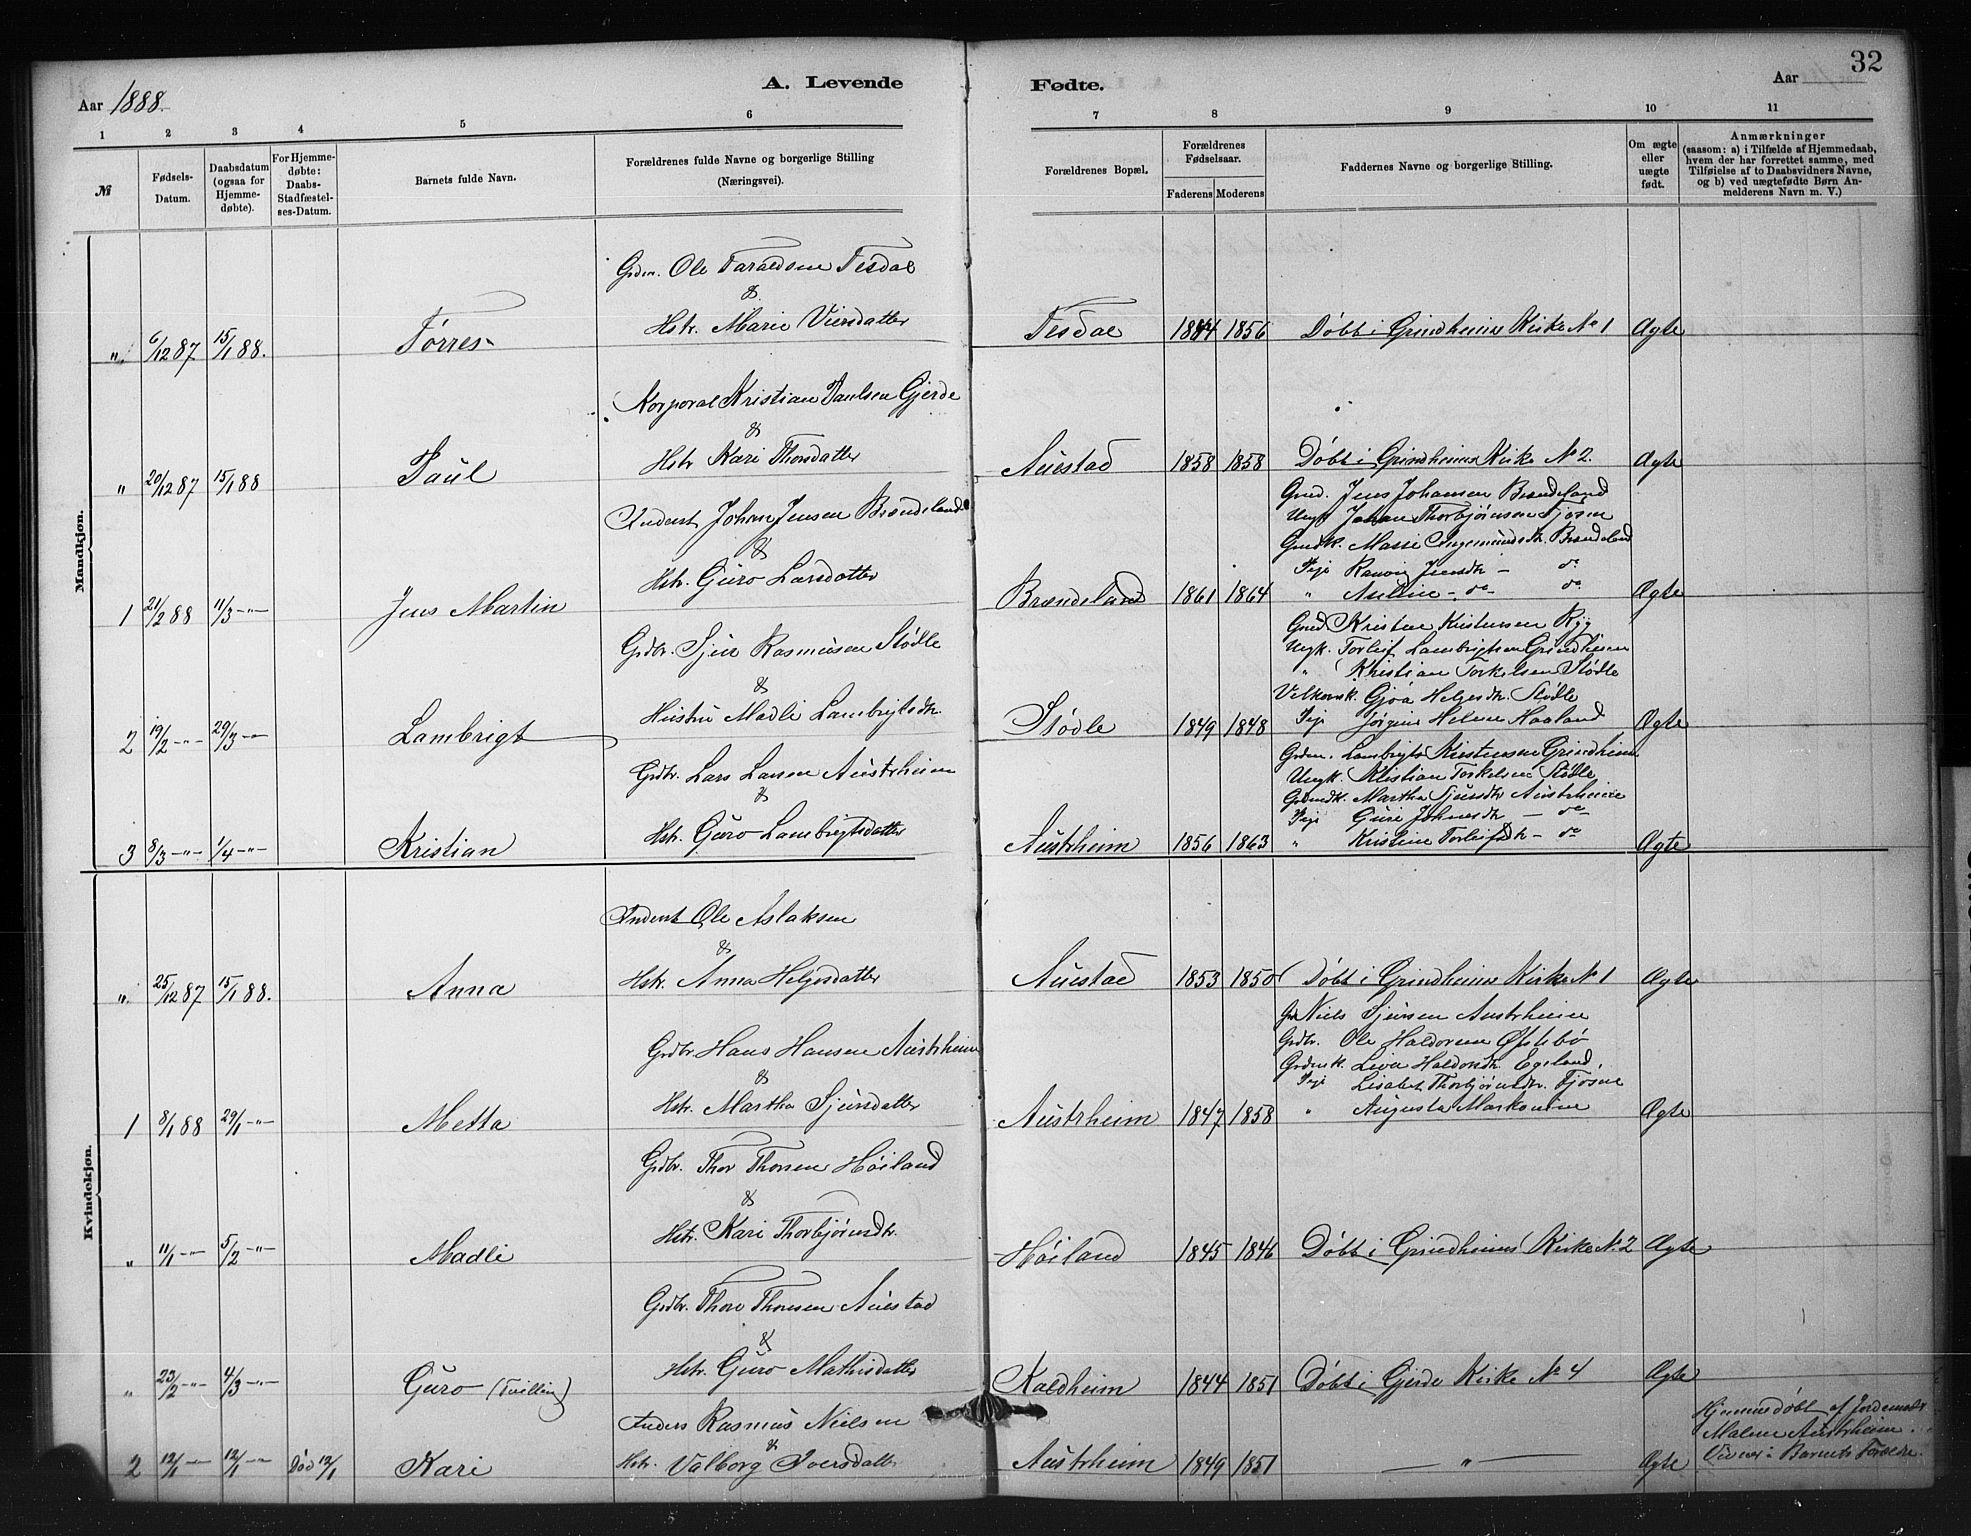 32
Aar 1888.
A. Levende
Fødte.
Aar
1 2 3 4 5 6 7 8 9 10 11
№
Fødsels-Datum.
Daabsdatum (ogsaa for Hjemme-døbte).
For Hjemme-døbte: Daabs-Stadfæstel-ses-Datum.
Barnets fulde Navn.
Forældrenes fulde Navne og borgerlige Stilling (Næringsvei).
Forældrenes Bopæl.
Forældrenes Fødselsaar.
Faderens Moderens
Faddernes Navne og borgerlige Stilling.
Om ægte eller uægte født.
Anmærkninger (saasom: a) i Tilfælde af Hjemmedaab, hvem der har forrettet samme, med Tilføielse af to Daabsvidners Navne, og b) ved uægtefødte Børn An-melderens Navn m. V.)
Mandkjøn.
Grdm. Ole Taraldsen Tesdal
&
Hstr. Marie Viersdatter
" 6/12 87 15/1 88. Tørres Tesdal 1844 1856 Døbt i Grindheims Kirke No 1 Ægte
Korporal Kristian Paulsen Gjerde
&
Hstr Kari Thorsdatter
" 20/12 87 15/1 88 Paul Auestad 1858 1858 Døbt i Grindheims Kirke No 2. Ægte
Inderst Johan Jensen Brændeland
&
Hstr. Guro Larsdatter
1 21/2 88 11/3 -"- Jens Martin Brændeland 1861 1864 Ægte
Gmd. Jens Johansen Brændeland
Ungk Johan Thorbjørnsen Fjøsne
Gmdk. Marie Ingemundsdtr. Brændeland
Pige Jensdtr - do
" -do- do
Grdbr. Sjur Rasmusen Stødle
&
Hustru Madli Lambrigtsdtr.
2 19/2 -"- 29/3 -"- Lambrigt Stødle 1849 1848 Ægte
Gmd Kristen Kristensen Ryg
Ungk. Torleif Lambrigtsen Grindheim
" Kristian Torkelsen Stødle
Gjøa Helgesdtr. Stødle
Pige Jørgine Helene Haaland
Grdbr. Lars Larsen Austrheim
&
Hstr. Guro Lambrigtsdatter
3 8/3 -"- 1/4 -"- Kristian Austrheim 1856 1863 Ægte
Grdm. Lambrigt Kristensen Grindheim
Ungk. Kristian Torkelsen Stødle
Grdmdk. Martha Sjursdtr Austrheim
Pige Guri Johnsdtr - do -
" Kristine Torleifsdtr - do
Kvindekjøn.
Inderst Ole Aslaksen
&
Hstr. Anna Helgesdatter
" 25/12 87 15/1 88. Anna Auestad 1853 1850 Døbt i Grindheims Kirke No 1 Ægte
Grdbr Hans Hansen Austrheim
&
Hstr. Martha Sjursdatter
1 8/1 88 29/1 -"- Metta Austrheim 1847 1858 Ægte
Niels Sjursen Austrheim
Grdbr. Ole Haldorsen Østebø
Grdmk. Liva Haldorsdtr. Egeland.
Pige Lisabet Thorbjørnsdtr. Fjøsne
" Augusta Markonine
Grdbr. Thor Thorsen Høiland
&
Hstr. Kari Thorbjørnsdtr.
" 11/1 -"- 5/2 -"- Madli Høiland 1845 1846 Døbt i Grindheims Kirke No 2 Ægte
Grdbr. Thore Thorsen Auestad
&
Hstr. Guro Mathisdatter
" 23/2 -"- 4/3 -"- Guro (Tvilling) Kaldheim 1844 1851 Døbt i Gjerde Kirke No 4 Ægte
Inders Rasmus Nielsen
&
Hstr. Valborg Iversdatter
2 12/1 -"- 12/1 -"- Død 12/1 Kari Austrheim 1849 1851 — " — Ægte
Hjemmedøbt af Jordemoder
Malene Austrheim.
Vidner: Barnets Forældre.